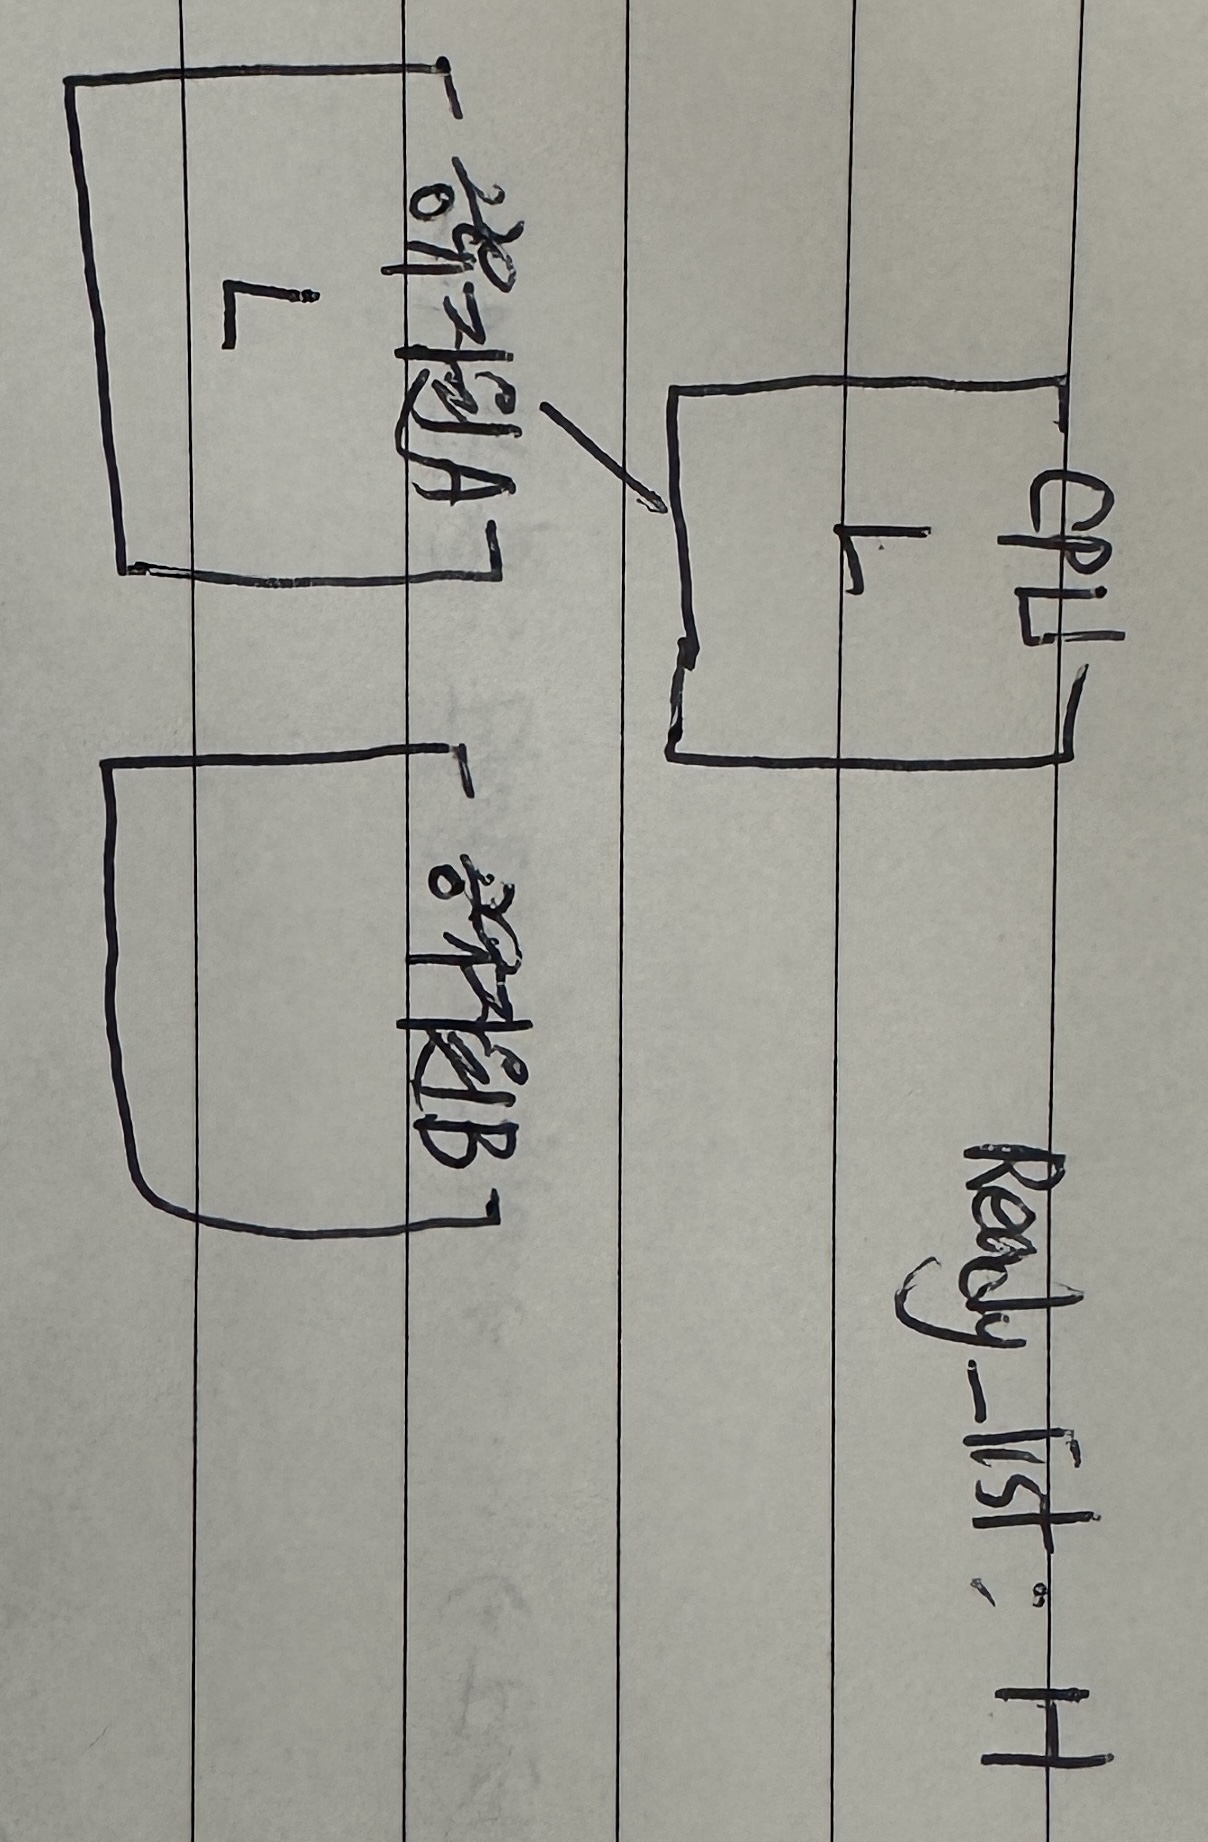 CPU
Ready_list : H
L
공유자원A
공유자원B
L